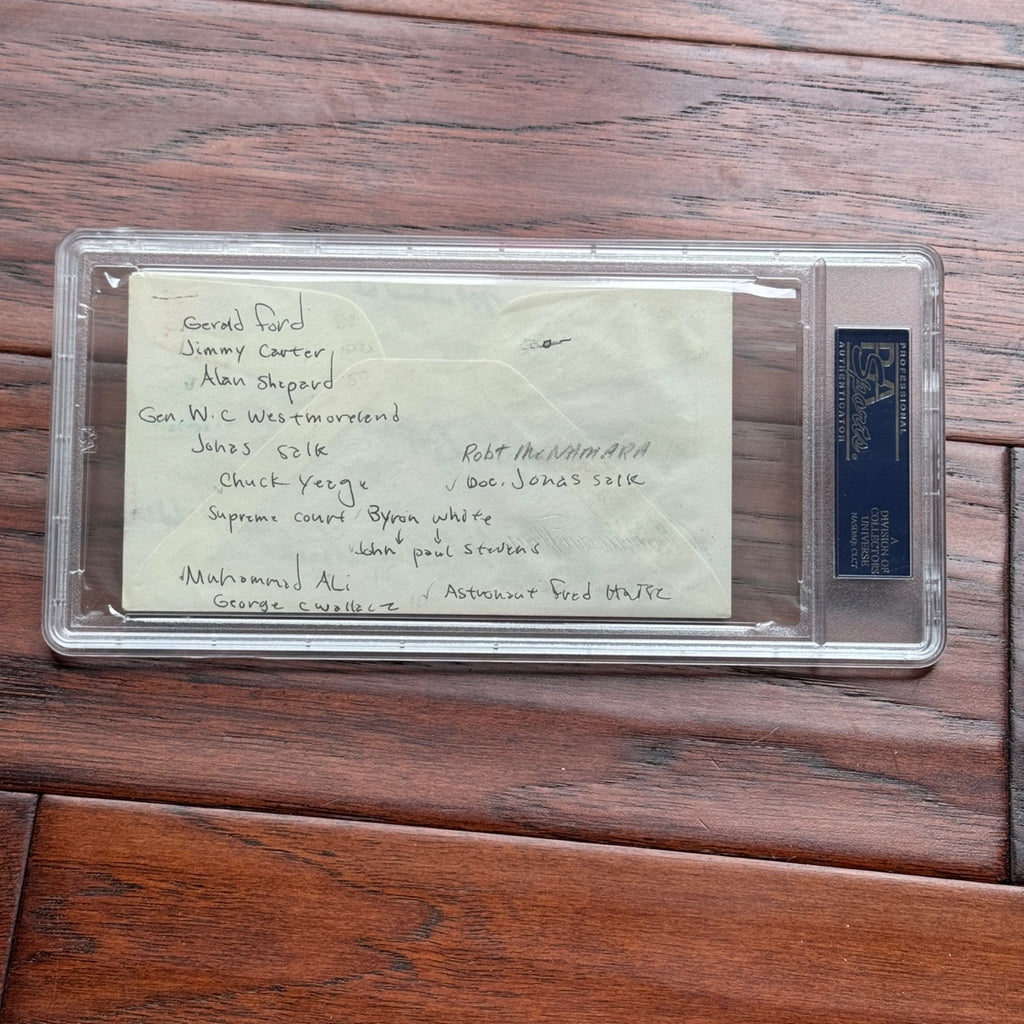 Gerald Ford
Jimmy Carter
Alan Shepard
Gen. W.C Westmoreland
Jonas Salk
Robt McNAMARA
Chuck Yeage
✓ Doc. Jonas Salk
Supreme court Byron white
John paul Stevens
Muhammad ALi
George C Wallace
✓ Astronaut Fred Haise
PSA
Sports
PROFESSIONAL
AUTHENTICATOR
A
DIVISION OF
COLLECTORS
UNIVERSE
NASDAQ: CLCT